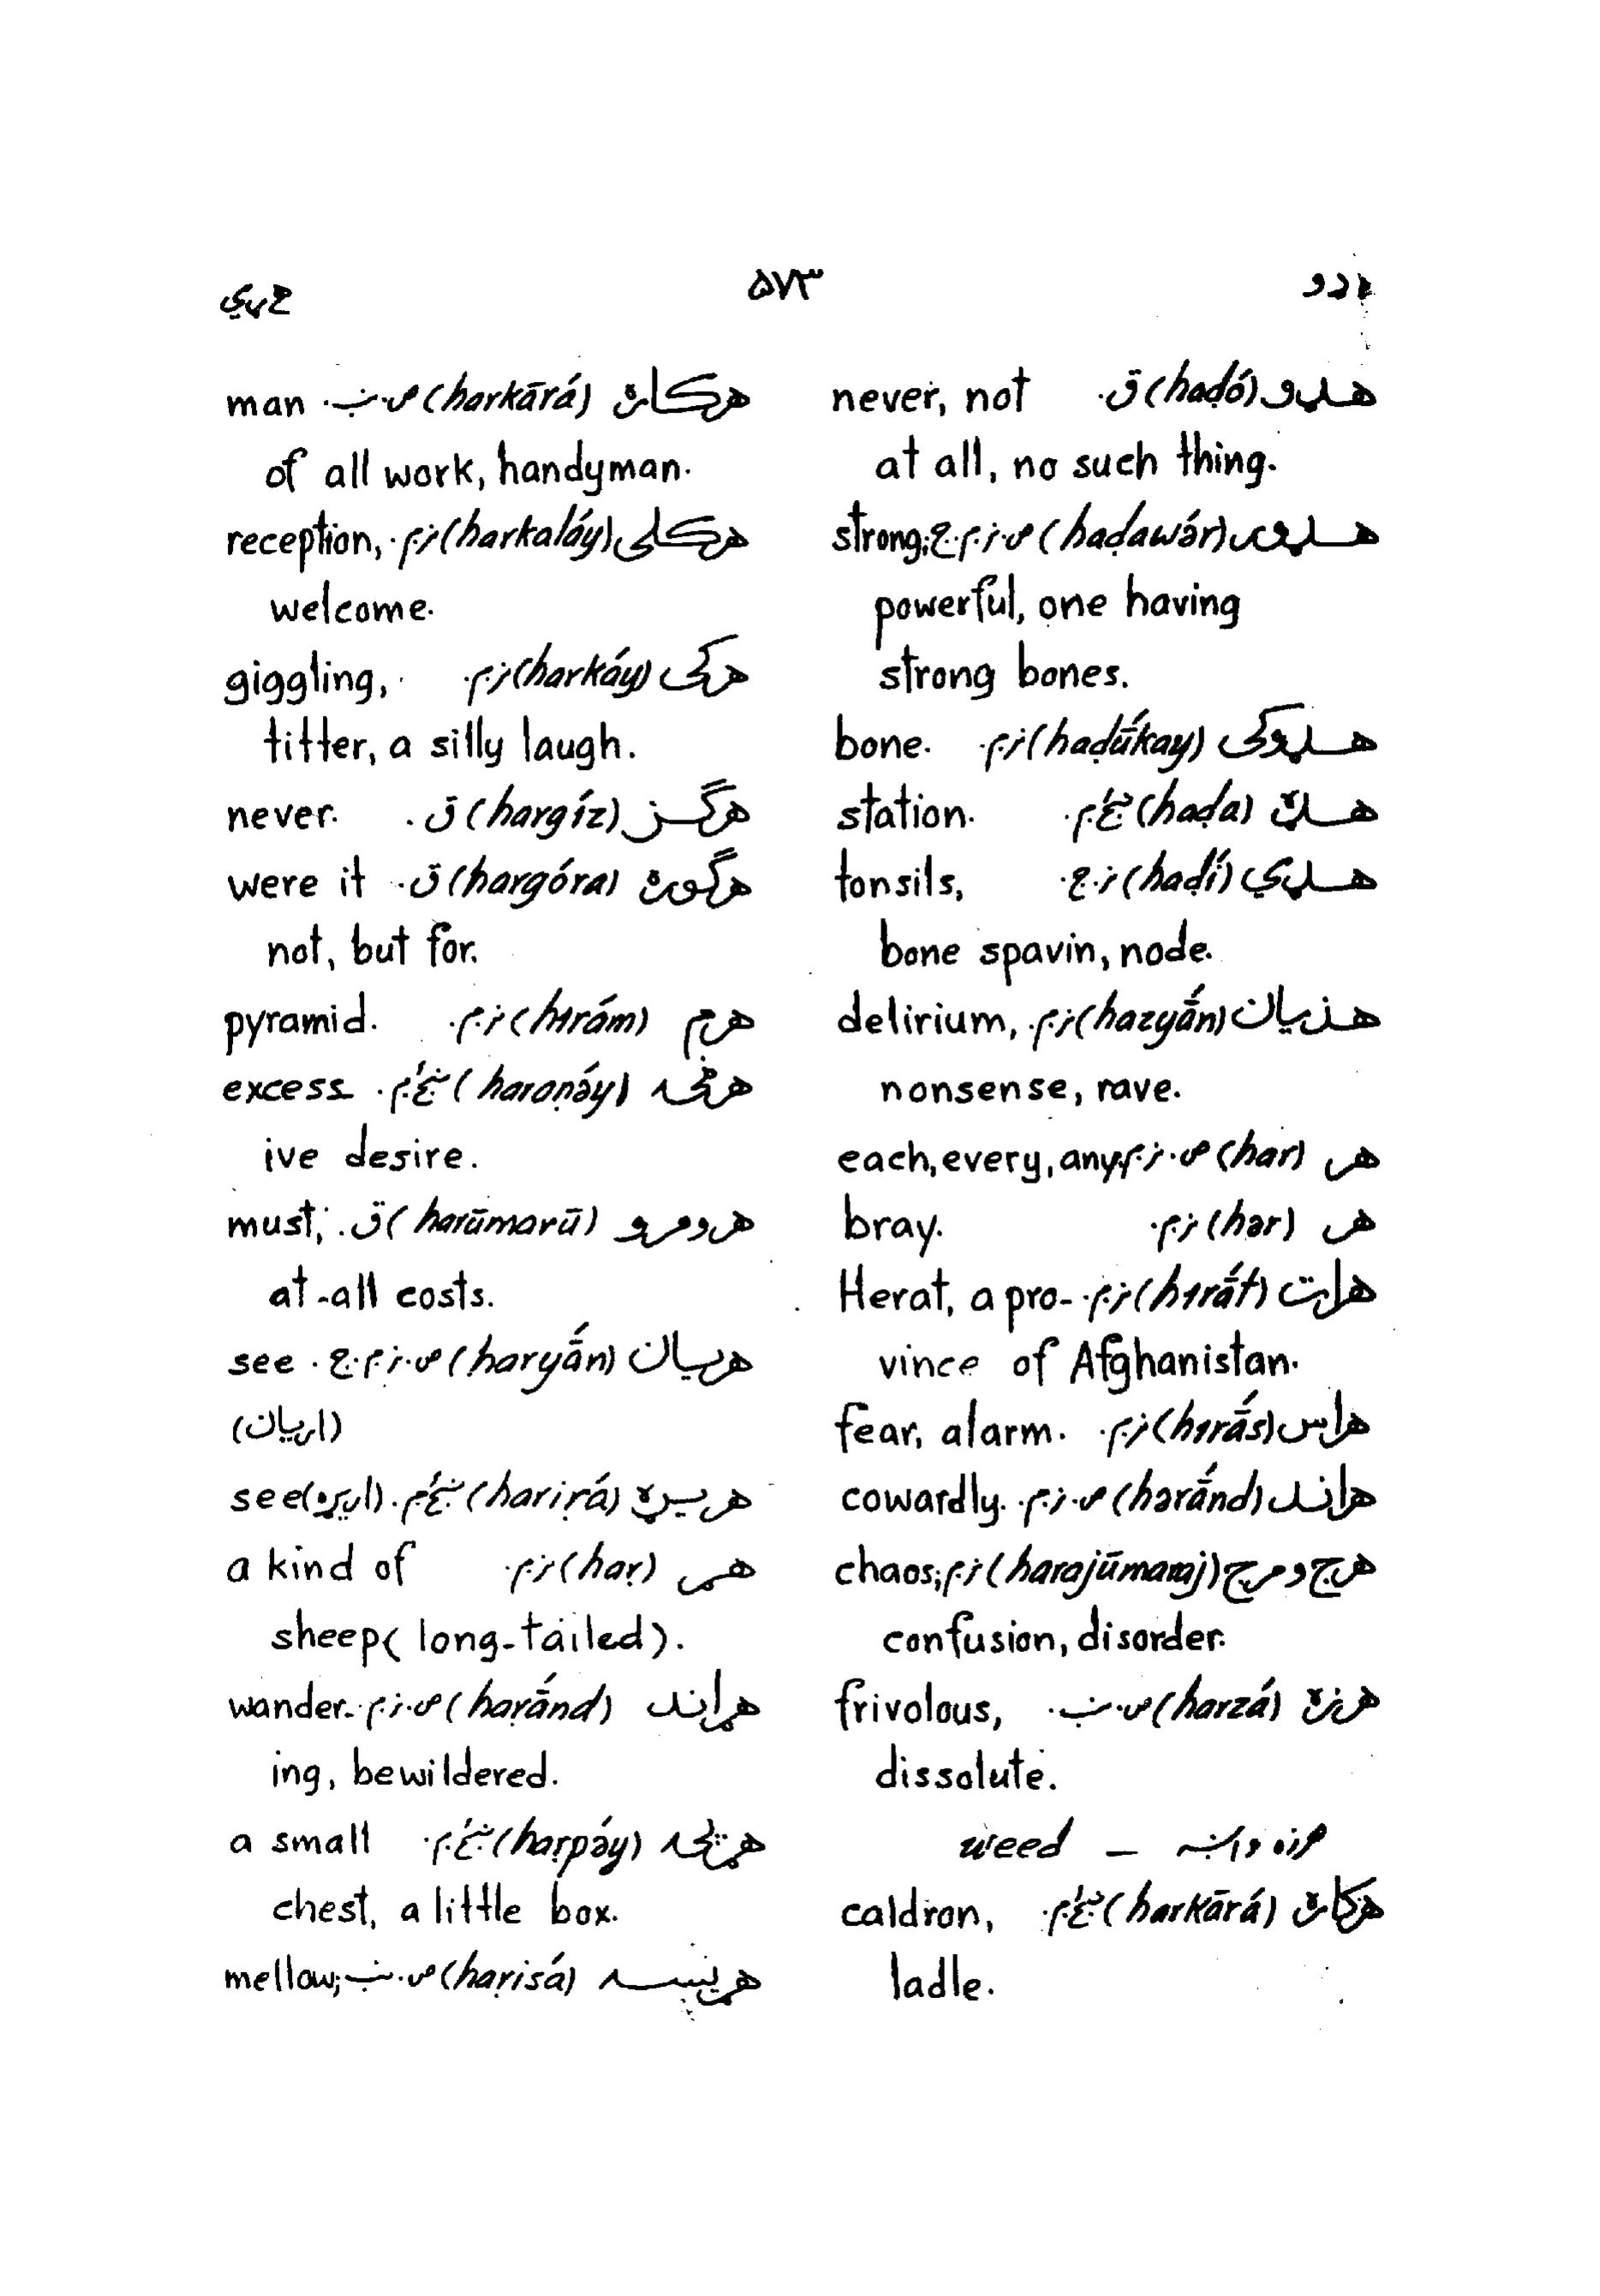 ۵۷۳
هډو (haḍó) ق. never, not
at all, no such thing.
هډور (haḍawár) ص.ز.م.ج. strong;
powerful, one having
strong bones.
هډوکی (haḍúkay) ز.م. bone.
هډه (haḍa) ښځ.م. station.
هډي (haḍí) ز.ج. tonsils,
bone spavin, node.
هذیان (hazyā́n) ز.م. delirium,
nonsense, rave.
هر (har) ص.ز.م. each, every, any.
هر (hər) ز.م. bray.
هرات (hırā́t) ز.م. Herat, a pro-
vince of Afghanistan.
هراس (hırā́s) ز.م. fear, alarm.
هراند (hərā́nd) ص.ز.م. cowardly.
هرج و مرج (harajūmaraj) ز.م. chaos;
confusion, disorder.
هرزه (harzá) ص.ب. frivolous,
dissolute.
هرزه واښه — weed
هرکاره (harkārá) ښځ.م. caldron,
ladle.
هرکاره (harkārá) ص.ب. man
of all work, handyman.
هرکلی (harkaláy) ز.م. reception,
welcome.
هرکی (harkáy) ز.م. giggling,
titter, a silly laugh.
هرگـز (hargíz) ق. never.
هرګوره (hargóra) ق. were it
not, but for.
هرم (hırám) ز.م. pyramid.
(haraṇə́y) ښځ.م. excess-
ive desire.
هرومرو (harūmarū) ق. must,
at-all costs.
هریان (haryā́n) ص.ز.م.ج. see
(اریان)
هریړه (hariṛá) ښځ.م. see (اړیړه)
هړ (haṛ) ز.م. a kind of
sheep (long-tailed).
هړاند (haṛā́nd) ص.ز.م. wander-
ing, bewildered.
(haṛpə́y) ښځ.م. a small
chest, a little box.
هړیسه (haṛisá) ص.ب. mellow;